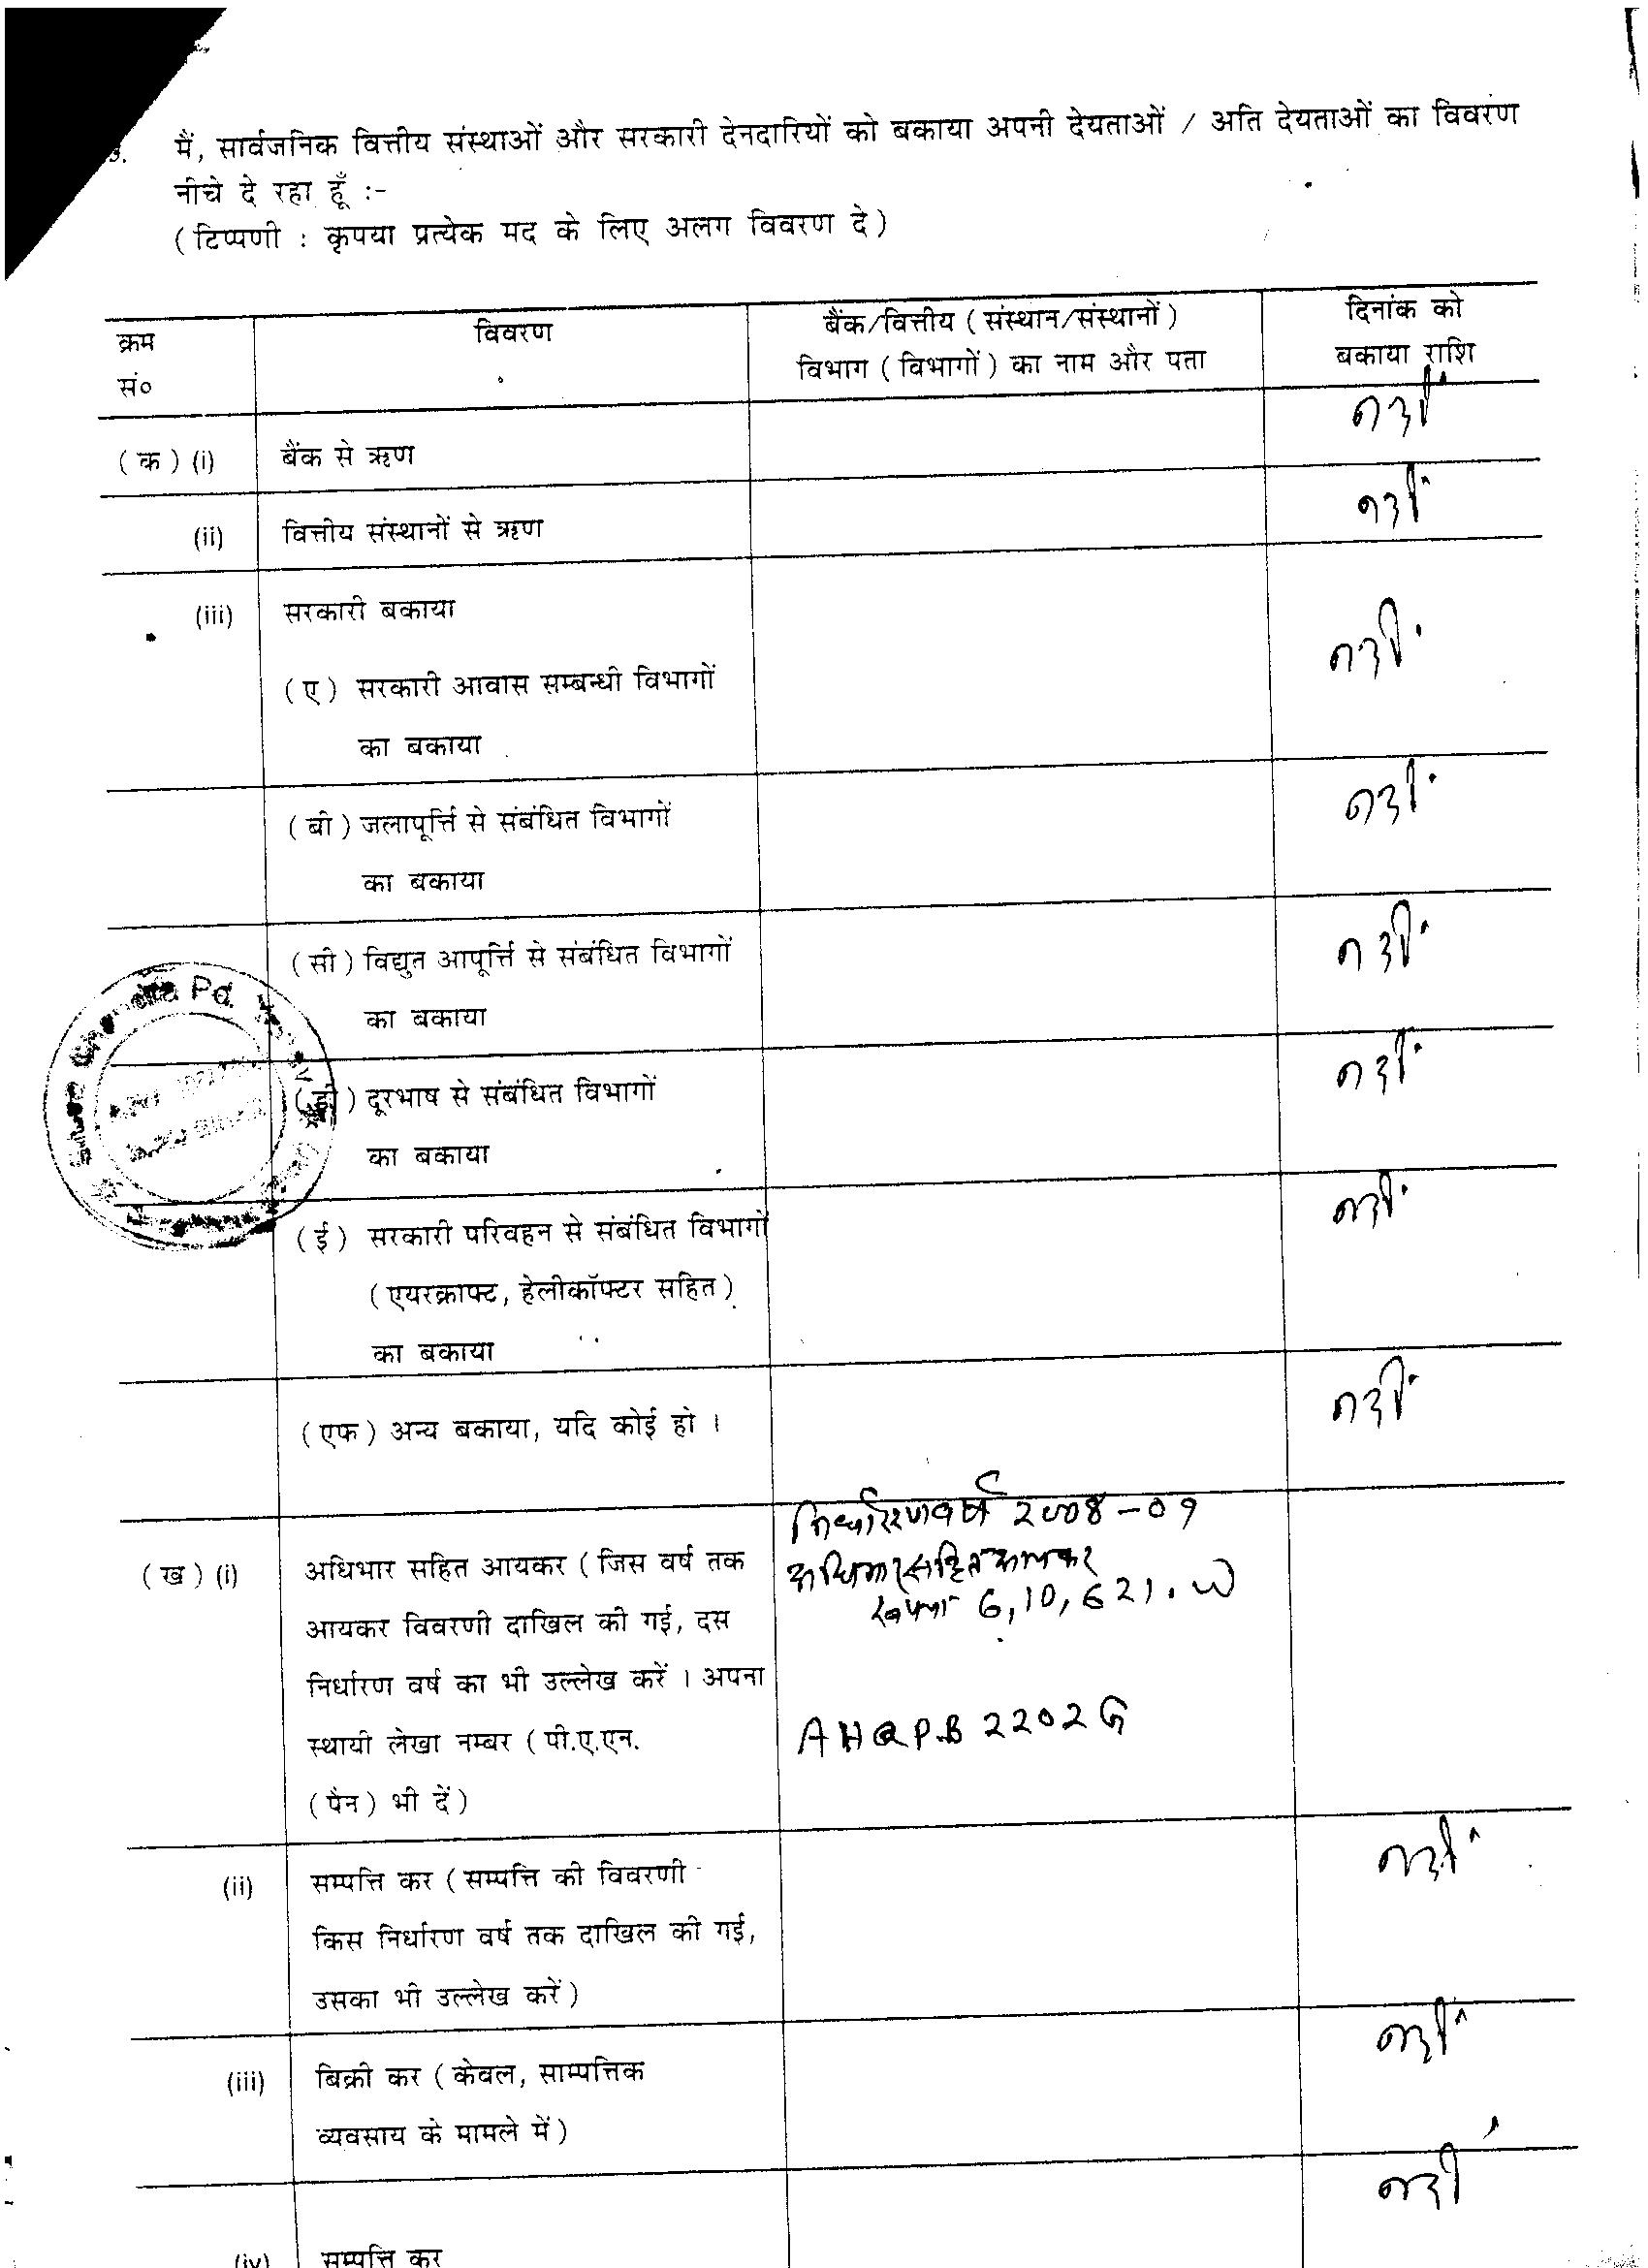 3.
मैं, सार्वजनिक वित्तीय संस्थाओं और सरकारी देनदारियों को बकाया अपनी देयताओं / अति देयताओं का विवरण
नीचे दे रहा हूँ :-
(टिप्पणी : कृपया प्रत्येक मद के लिए अलग विवरण दे)
क्रम सं०
विवरण
बैंक/वित्तीय (संस्थान/संस्थानों)
विभाग (विभागों) का नाम और पता
दिनांक को
बकाया राशि
(क) (i) बैंक से ऋण नहीं
(ii) वित्तीय संस्थानों से ऋण नहीं
(iii) सरकारी बकाया
(ए) सरकारी आवास सम्बन्धी विभागों नहीं
का बकाया
(बी) जलापूर्त्ति से संबंधित विभागों नहीं
का बकाया
(सी) विद्युत आपूर्त्ति से संबंधित विभागों नहीं
का बकाया
Pd.
(डी) दूरभाष से संबंधित विभागों नहीं
का बकाया
(ई) सरकारी परिवहन से संबंधित विभागों नहीं
(एयरक्राफ्ट, हेलीकॉफ्टर सहित)
का बकाया
(एफ) अन्य बकाया, यदि कोई हो । नहीं
(ख) (i) अधिभार सहित आयकर (जिस वर्ष तक
आयकर विवरणी दाखिल की गई, दस
निर्धारण वर्ष का भी उल्लेख करें । अपना
स्थायी लेखा नम्बर (पी.ए.एन.
(पैन) भी दें)
निर्धारण वर्ष 2008-09
अधिभार सहित आयकर
रूपया 6,10,621.00
AHQPB2202G
(ii) सम्पत्ति कर (सम्पत्ति की विवरणी नहीं
किस निर्धारण वर्ष तक दाखिल की गई,
उसका भी उल्लेख करें)
(iii) बिक्री कर (केवल, साम्पत्तिक नहीं
व्यवसाय के मामले में)
(iv) सम्पत्ति कर नहीं